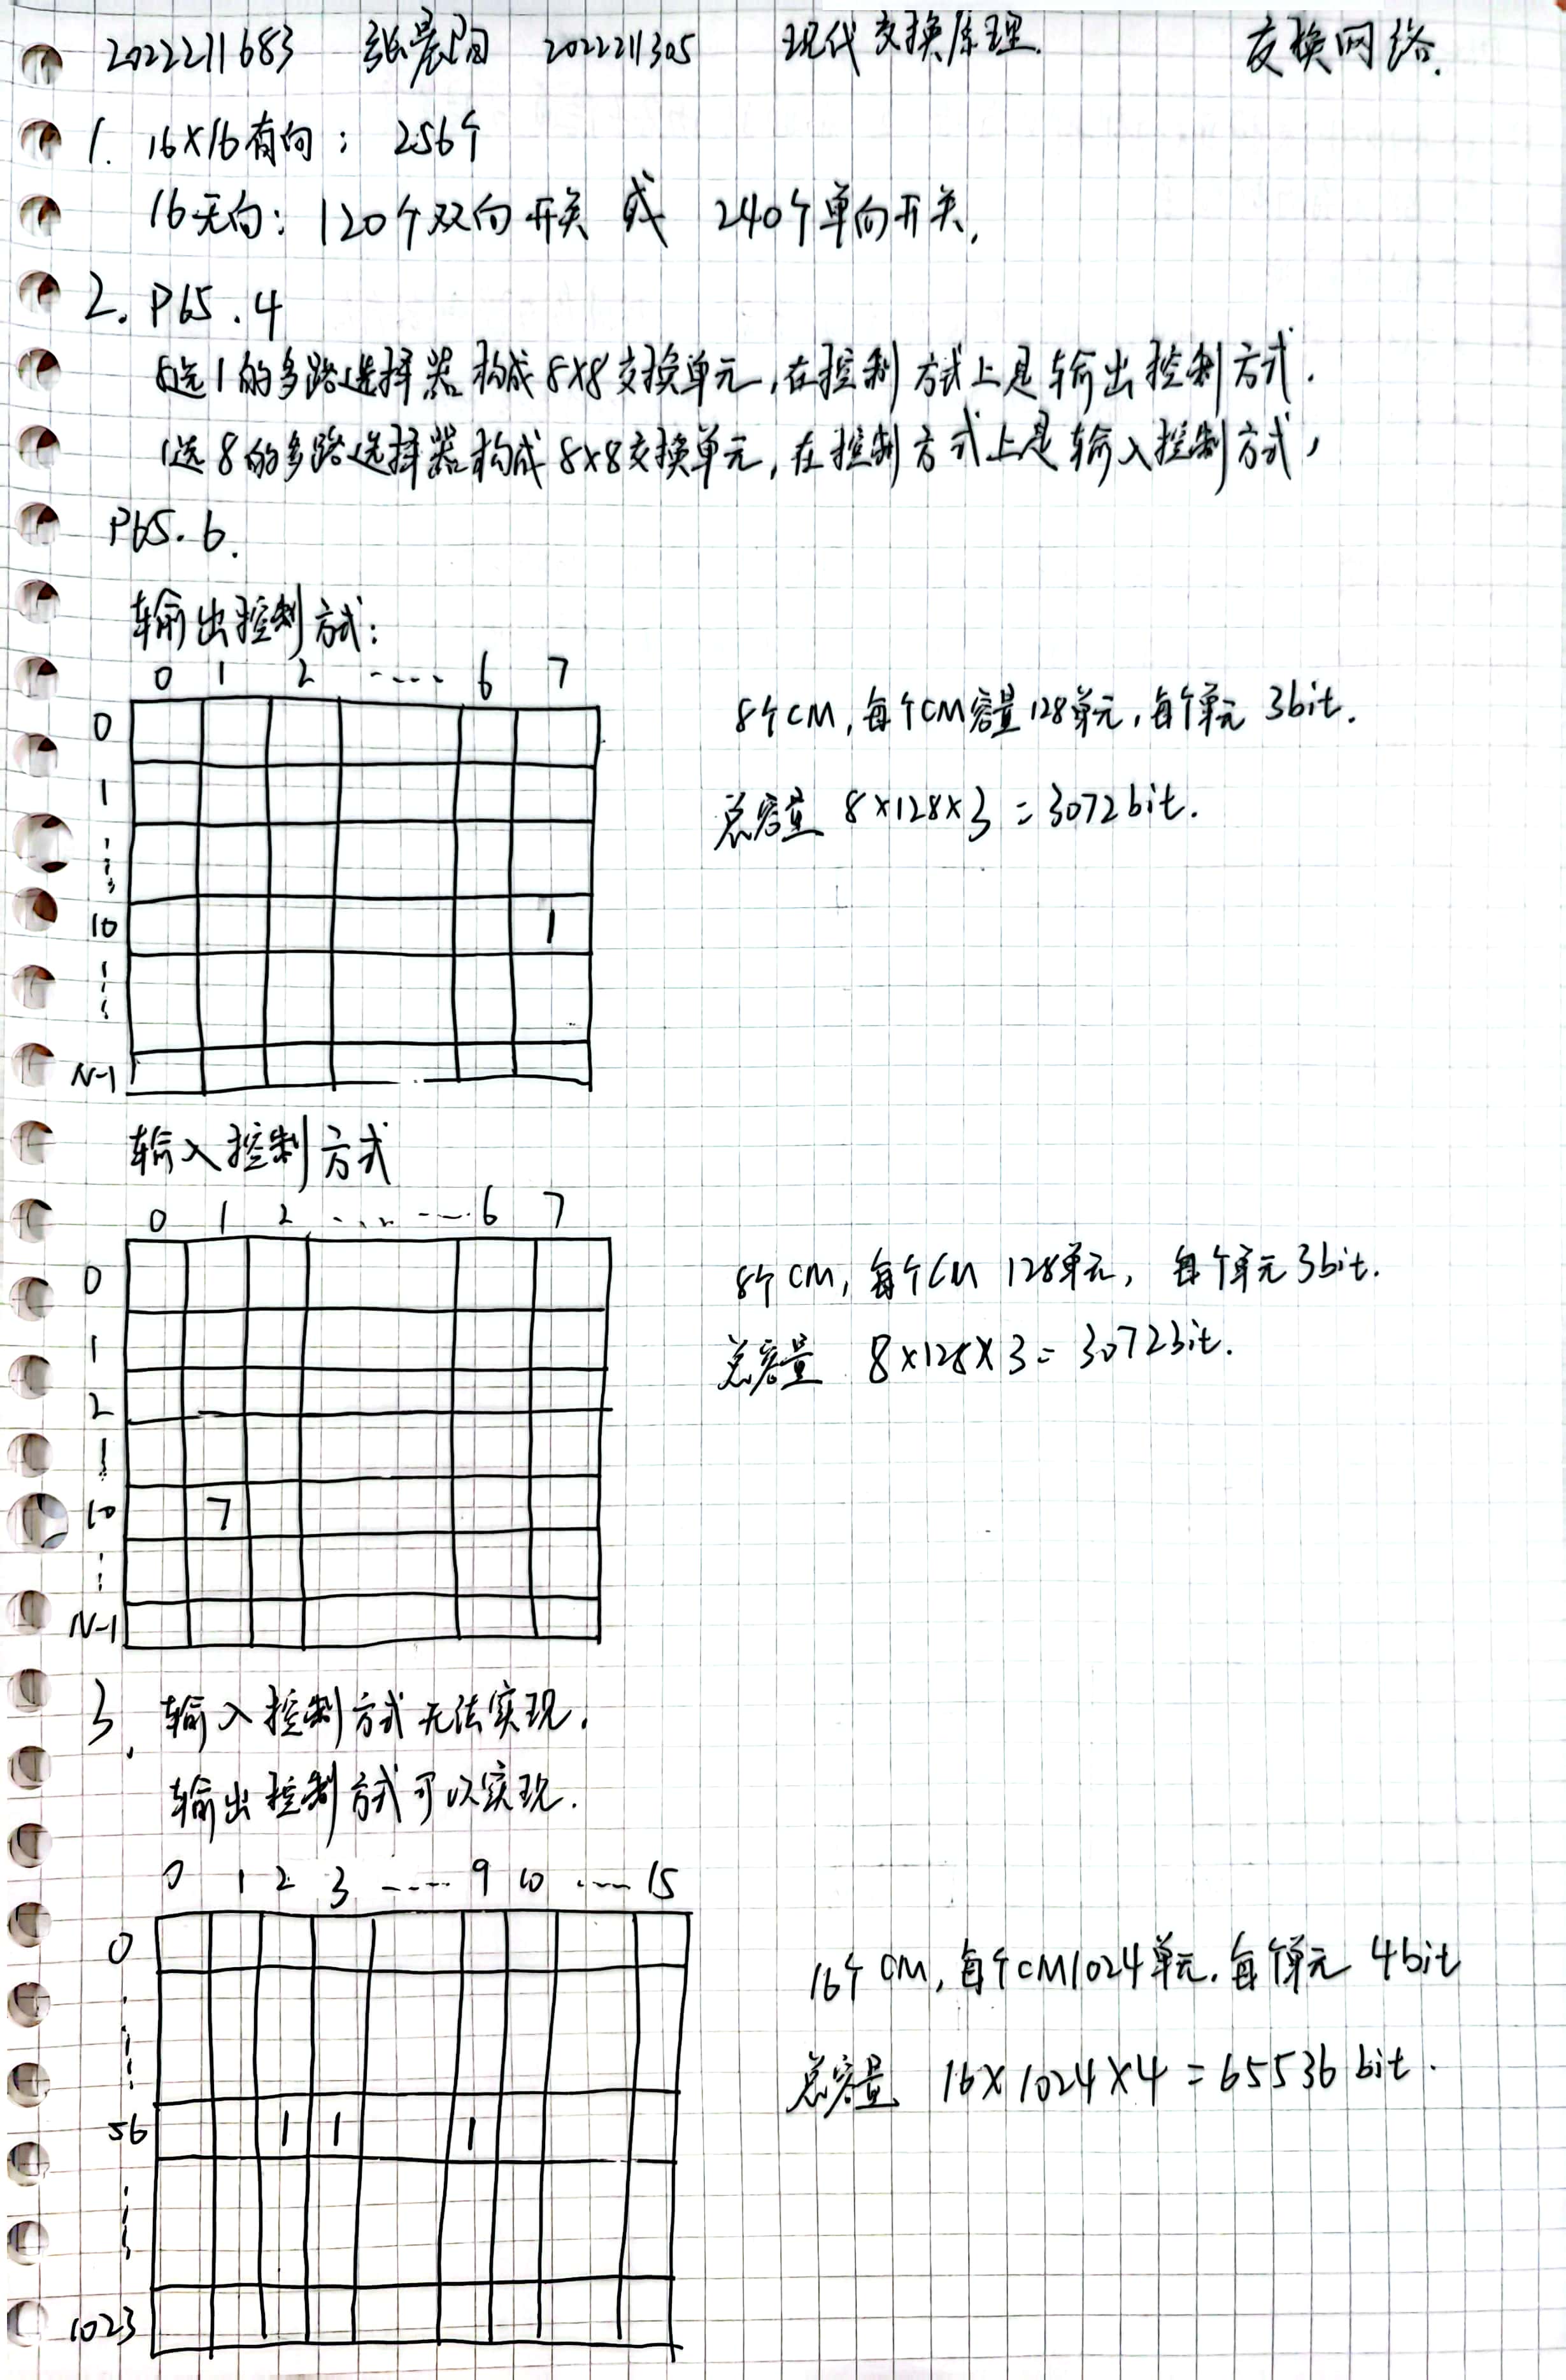 2022211683 张晨阳 2022211305 现代交换原理. 交换网络.
1. 16×16有向: 256个
16无向: 120个双向开关 或 240个单向开关.
2. P65.4
8选1的多路选择器构成8×8交换单元,在控制方式上是输出控制方式.
1选8的多路选择器构成8×8交换单元,在控制方式上是输入控制方式,
P65.6.
输出控制方式:
0 1 2 ---- 6 7
0
8个CM,每个CM容量128单元,每个单元 3bit.
1
总容量 8×128×3=3072bit.
10 1
N-1
输入控制方式
0 1 2 ---- ---- 6 7
0
8个CM, 每个CM 128单元, 每个单元3bit.
1
总容量 8×128×3=3072bit.
2
10 7
N-1
3. 输入控制方式无法实现.
输出控制方式可以实现.
0 1 2 3 ---- 9 10 ---- 15
0
16个CM,每个CM1024单元.每个单元 4bit
56 1 1 1
总容量 16×1024×4=65536 bit.
1023